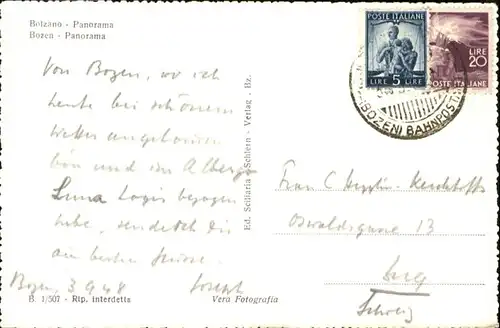 Bolzano - Panorama
Bozen - Panorama
POSTE ITALIANE
LIRE 5 LIRE
LIRE
20
POSTE ITALIANE
(BOZEN) BAHNPOST
Von Bozen, wo ich
heute bei schönem
Wetter angekommen
bin und im Albergo
Luna Logis bezogen
habe, sende ich Dir
die besten Grüsse.
Bozen, 3 9 48 Joseph
Ed. Sciliaria - Schlern - Verlag - Bz.
Frau C
Oswaldsgasse 13
Zug
Schweiz
B. 1/507 - Rip. interdetta
Vera Fotografia